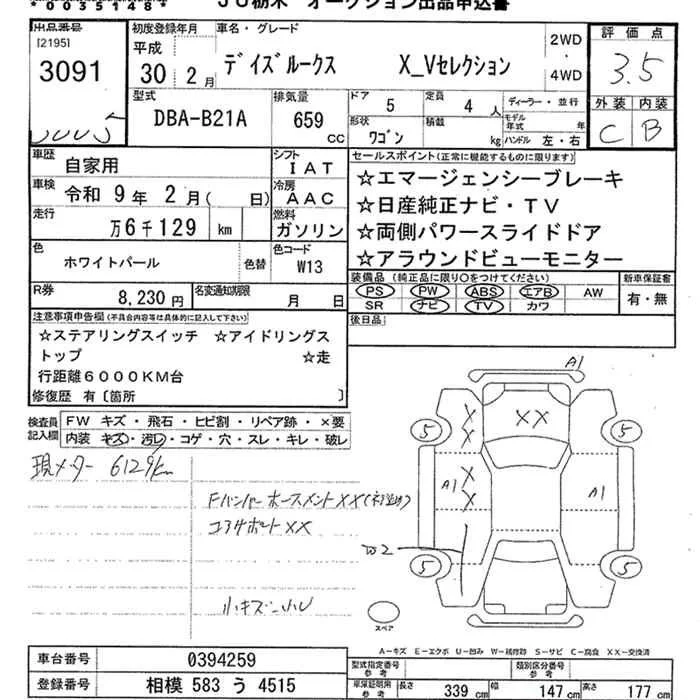 *0035148*
JU栃木 オークション出品申込書
出品番号
[2195]
3091
初度登録年月
平成
30年 2月
車名・グレード
デイズルークス X_Vセレクション
2WD
4WD
評価点
3.5
外装 内装
C B
型式
DBA-B21A
排気量
659 CC
ドア 5
定員 4人
形状 ワゴン
積載 kg
ディーラー・並行
モデル年式 年
ハンドル 左・右
車歴 自家用
シフト IAT
車検 令和 9年 2月( 日)
冷房 AAC
走行 万6千129 km
燃料 ガソリン
色 ホワイトパール 色替
色コード W13
R券 8,230円
名変通知期限 月 日
セールスポイント(正常に機能するものに限ります)
☆エマージェンシーブレーキ
☆日産純正ナビ・TV
☆両側パワースライドドア
☆アラウンドビューモニター
装備品 (純正品に限り○をつけてください)
PS PW ABS エアB AW
SR ナビ TV カワ
新車保証書
有・無
後日品
注意事項申告欄(不具合内容等は具体的に記入して下さい)
☆ステアリングスイッチ ☆アイドリングス
トップ ☆走
行距離6000KM台
修復歴 有〔箇所 〕
検査員記入欄
FW キズ・飛石・ヒビ割・リペア跡・×要
内装 キズ・汚レ・コゲ・穴・スレ・キレ・破レ
現メーター 6129km
Fバンパー ホースメント XX
コアサポート XX
小キズ
A1
XX
5
5
X
X
A1
X
X
A1
W2
5
5
スペア
A-キズ E-エクボ U-凹み W-補修跡 S-サビ C-腐食 XX-交換済
車台番号 0394259
登録番号 相模 583 う 4515
型式指定番号 参考
類別区分番号 参考
車庫証明用 参考
長さ 339 cm
幅 147 cm
高さ 177 cm